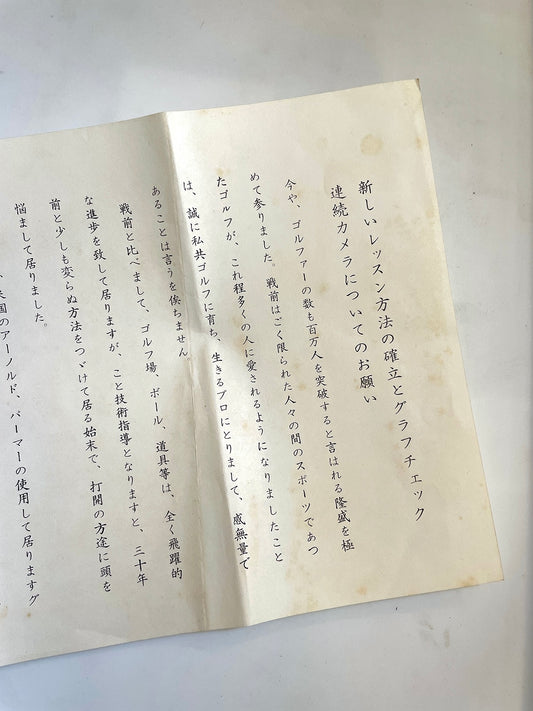 新しいレッスン方法の確立とグラフチェック
連続カメラについてのお願い
今や、ゴルファーの数も百万人を突破すると言はれる隆盛を極
めて参りました。戦前はごく限られた人々の間のスポーツであつ
たゴルフが、これ程多くの人に愛されるようになりましたこと
は、誠に私共ゴルフに育ち、生きるプロにとりまして、感無量で
あることは言うを俟ちません
戦前と比べまして、ゴルフ場、ボール、道具等は、全く飛躍的
な進歩を致して居りますが、こと技術指導となりますと、三十年
前と少しも変らぬ方法をつゞけて居る始末で、打開の方途に頭を
悩まして居りました。
国のアーノルド、パーマーの使用して居りますグ